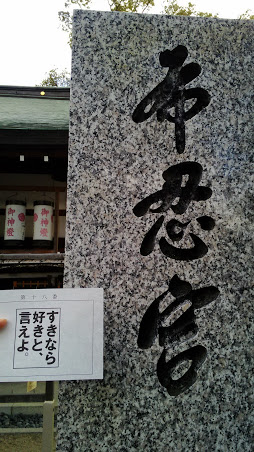 布忍宮
御神燈
御神燈
第十八番
すきなら
好きと、
言えよ。